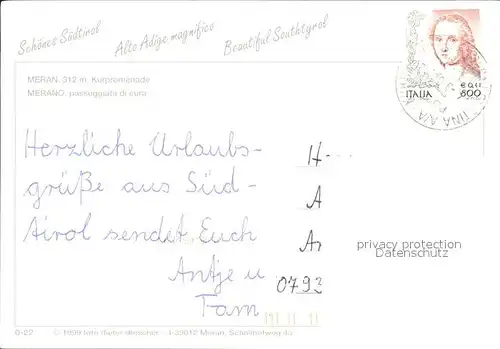 Schönes Südtirol
Alto Adige magnifico
Beautiful Southtyrol
MERAN, 312 m. Kurpromenade
MERANO, passeggiata di cura
ITALIA
€ 0,41
800
Herzliche Urlaubs-
grüße aus Süd-
tirol sendet Euch
Antje u
Fam
H
A
A
0793
privacy protection
Datenschutz
© 1999 Foto Dieter - I-39012 Meran,